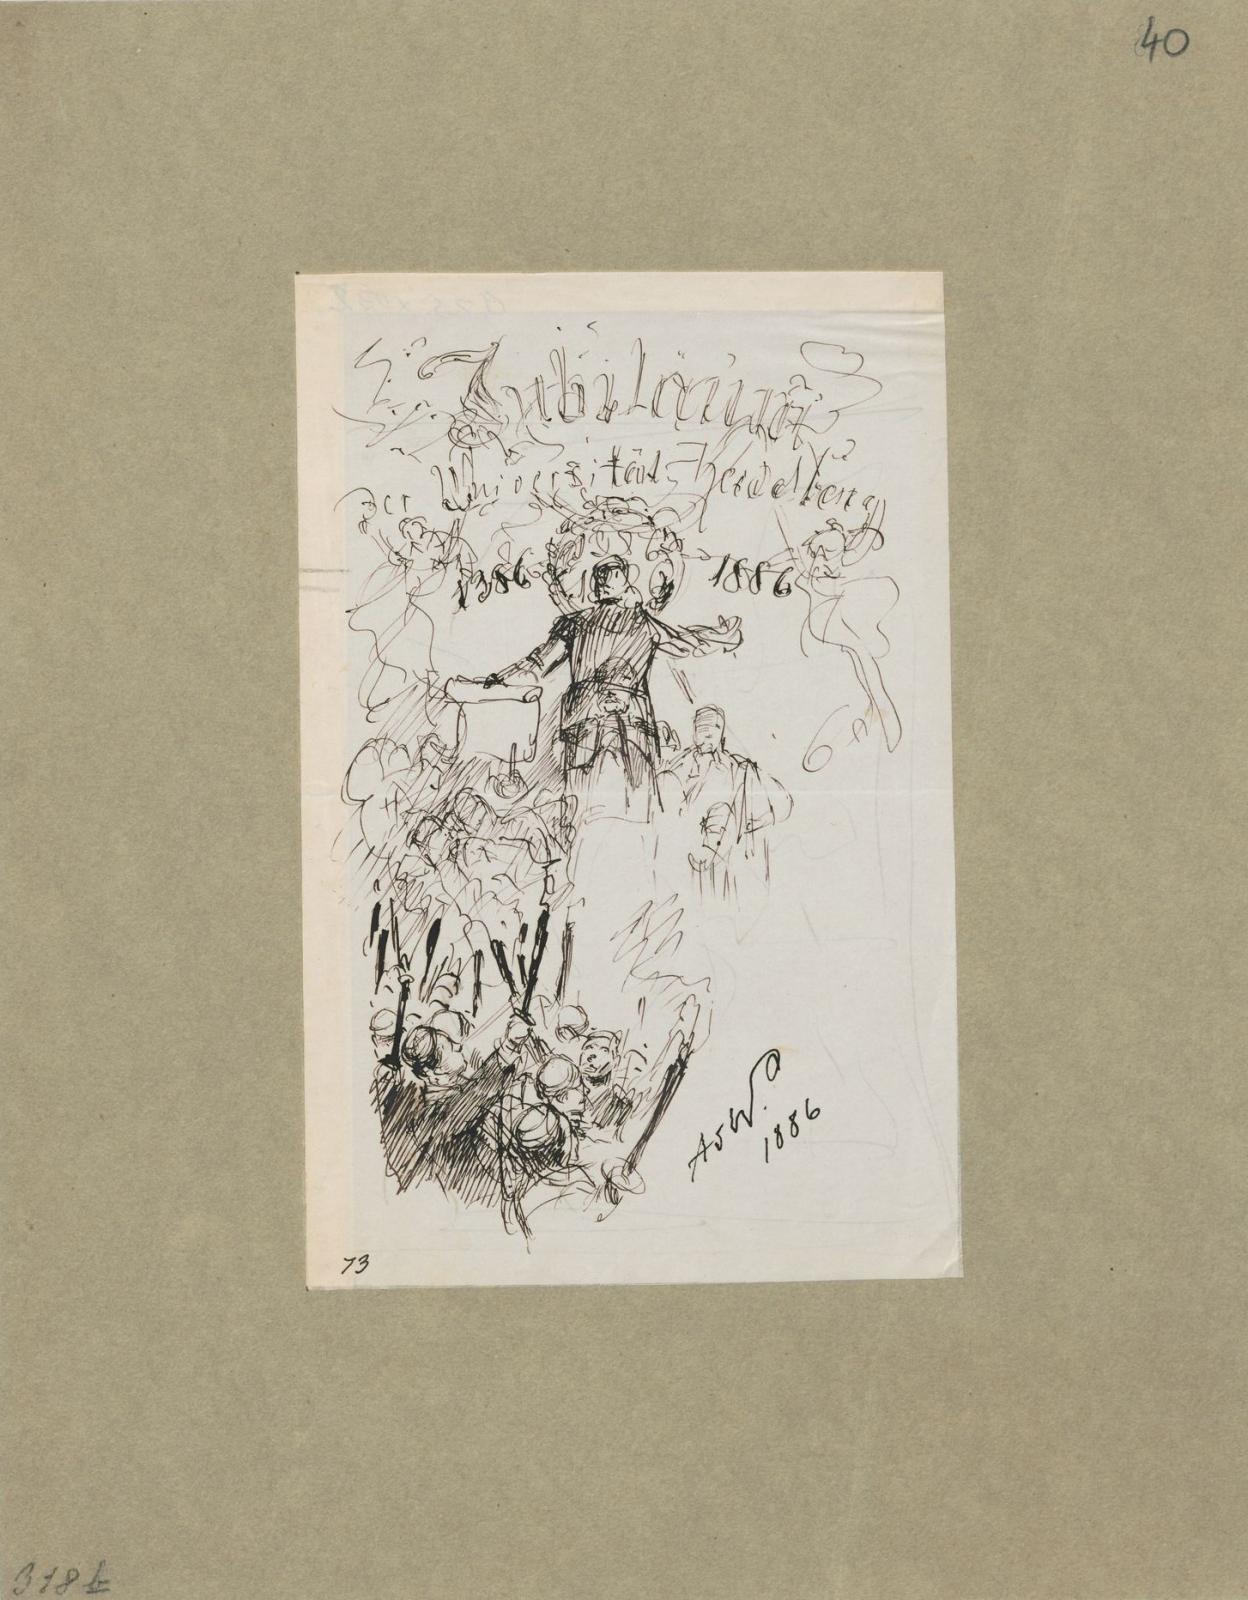 40
Jubiläum
der Universität Heidelberg
1386 1886
A v W.
1886
73
318